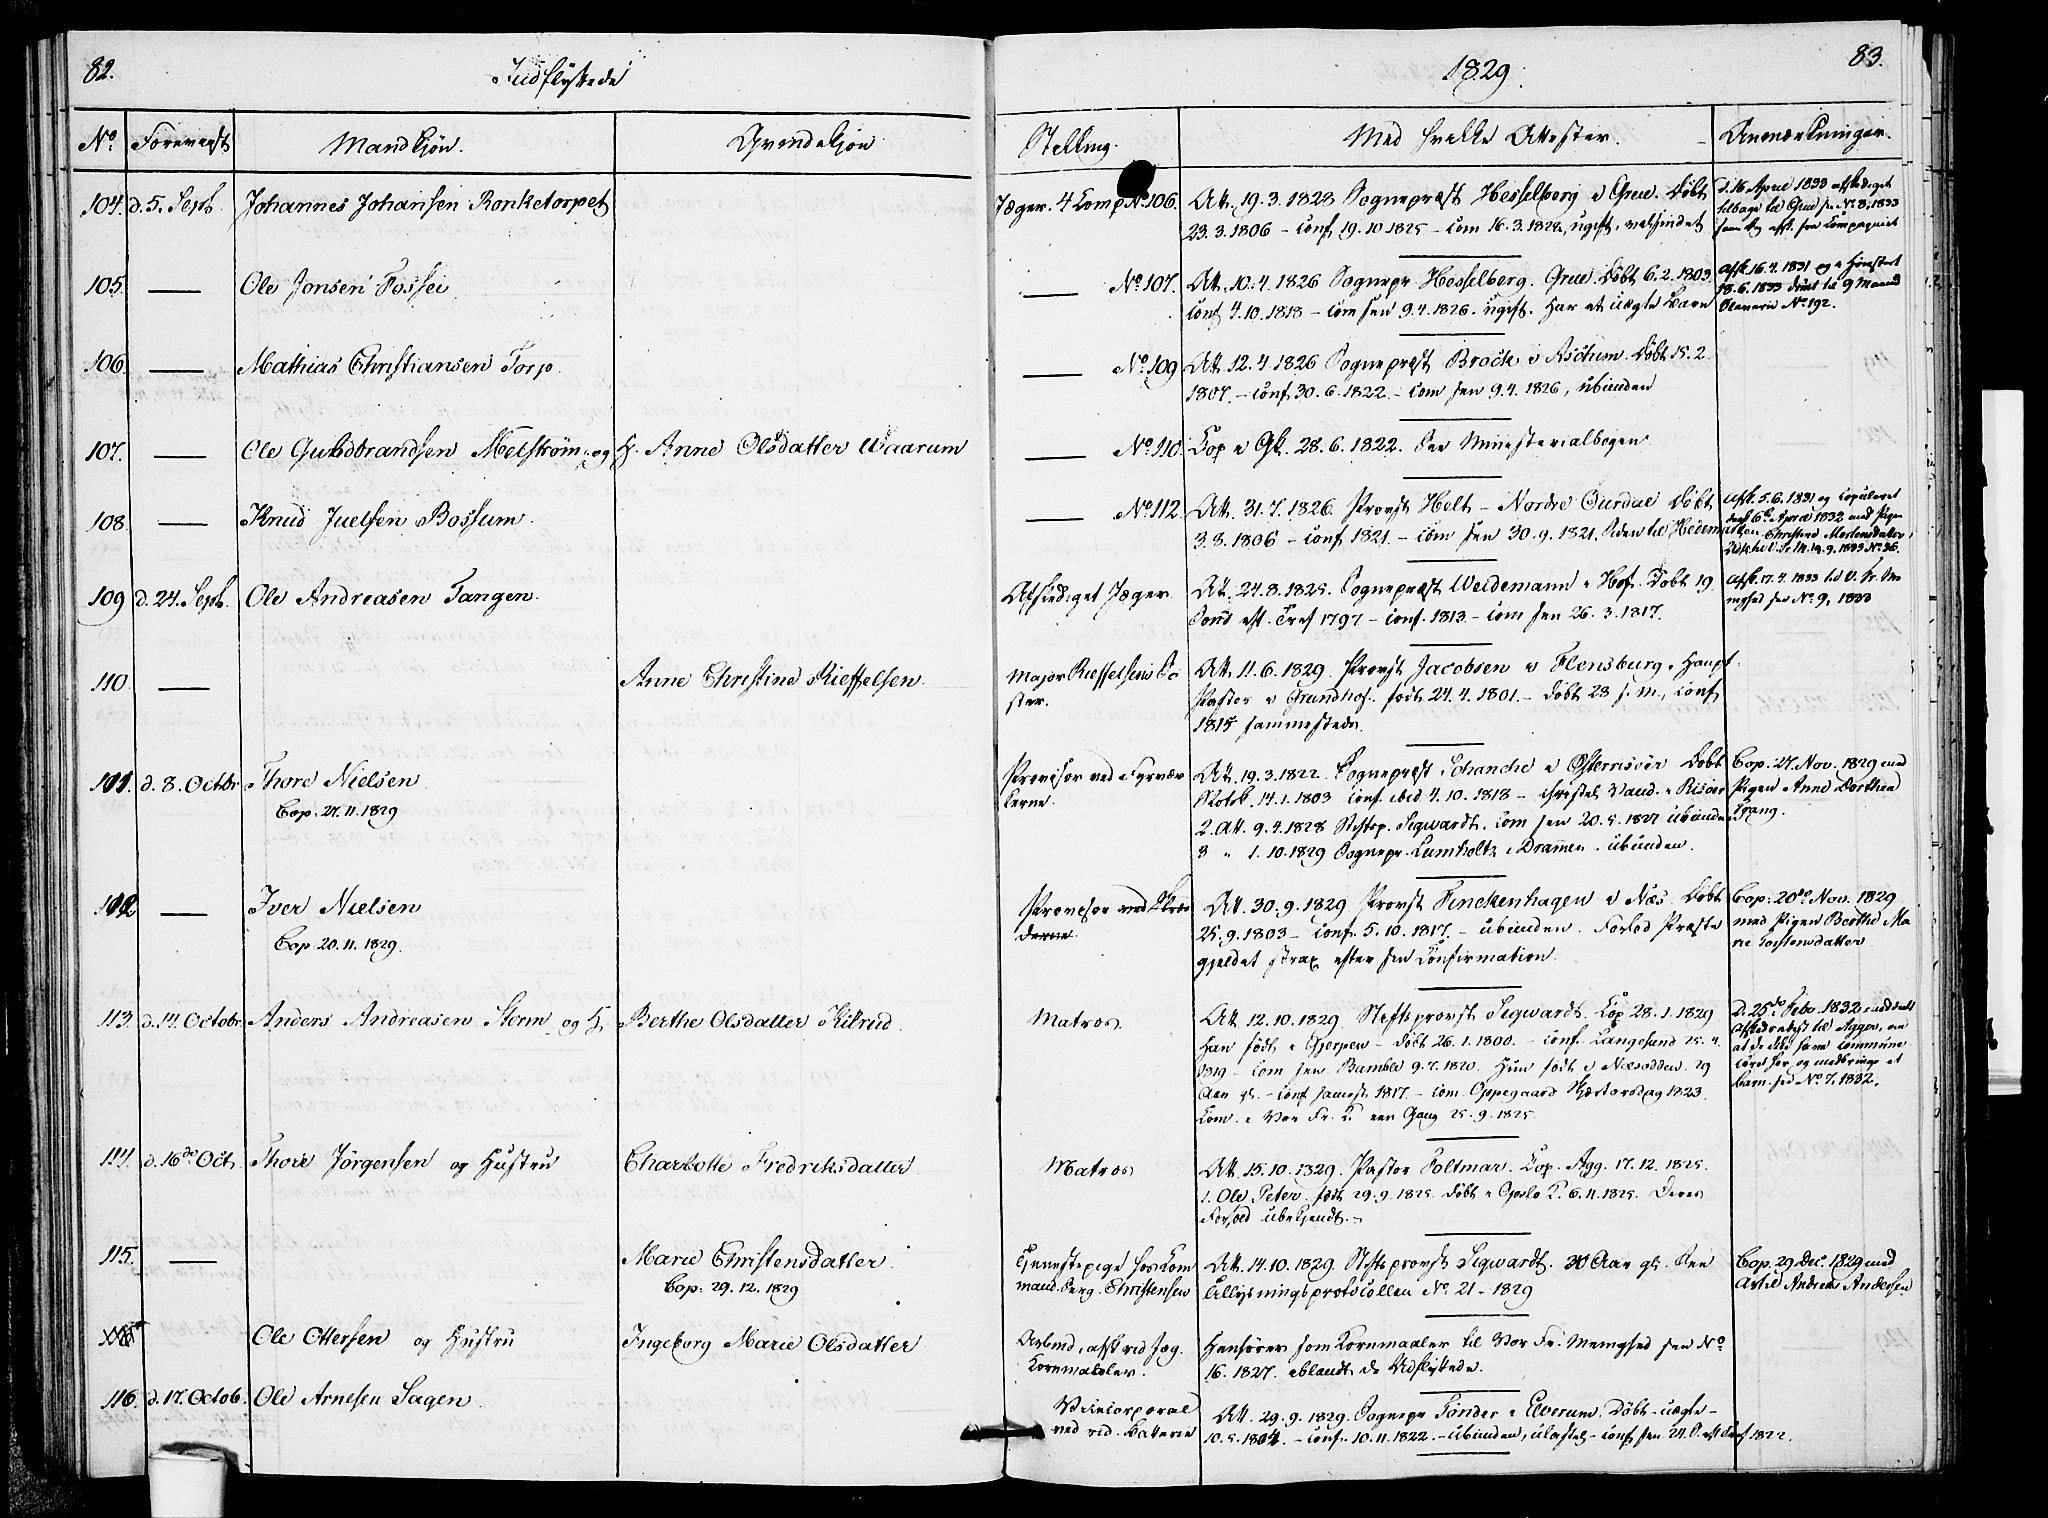 82.
Indflyttede
No
Foreviist
Mandkjøn.
Qvindekjøn
104. d. 5. Septb. Johannes Johansen Ronketorpet
105. Ole Jonsen Fossei
106. Mathias Christiansen Torp
107. Ole Gulbdbrandsen Melstrøm og H. Anne Olsdatter Waarum
108. Knud Juelsen Bossum.
109 d. 24. Septb. Ole Andreasen Tangen.
110. Anne Christine Rieffelsen
111. d. 8. Octbr Thore Nielsen
Cop. 27. 11. 1829
112 Iver Nielsen
Cop. 20. 11. 1829.
113. d. 14. Octobr. Anders Andreasen Storm og H. Berthe Olsdatter Kilrud
114. d. 16de Oct. Thore Jørgensen og Hustru Charlotte Fredriksdatter
115. Marie Christensdatter
Cop: 29. 12. 1829
Ole Ottersen og Hustru Ingeborg Marie Olsdatter
116. d. 17. Octob. Ole Arnesen Sagen
1829.
83.
Stilling.
Med hvilke Attester.
Anmærkninger.
Jæger. 4 Comp No 106. Att. 19. 3. 1828 Sognepræst Hesselberg i Grue. Døbt
23. 3. 1806 – conf. 19. 10. 1825 – com 16. 3. 1828, ugift,
d. 16 April 1833 afskediget
tilbage til Grue No 8, 1833
No 107. Att. 10. 4. 1826 Sognepr Hesselberg. Grue. Døbt 6. 2. 1803
conf 4. 10. 1818 – com sen 9. 4. 1826. ugift. Har et uægte Barn
Afsk. 16. 4. 1831
18. 6. 1833 9 Maaned
No 192.
No 109 Att. 12. 4. 1826 Sognepræst Brock i Aschim. Døbt 15. 2.
1807. – conf 30. 6. 1822 – com sen 9. 4. 1826, ubunden
No 110. Cop i Gk. 28. 6. 1822. See Ministerialbogen
No 112. Att. 31. 7. 1826. Provst Helt – Nordre Ourdal Døbt
3. 8. 1806 – conf 1821. – com sen 30. 9. 1821. Siden til Hedemarken
Afsk. 5. 6. 1831 og copuleret
6te April 1832 med Pigen
Christine Mortensdatter,
Afskediget Jæger Att. 24. 8. 1825. Sognepræst Weidemann i Hof. Døbt 19
Sønd eft. Tref 1797 – conf. 1813. – com sen 26. 3. 1817.
Afsk. 17. 4. 1833 til V. Fr. Me
nighed see No 9, 1833
Major Rieffelsens Sø
ster.
Att. 11. 6. 1829. Provst Jacobsen i Flensburg, Haupt
Pastor i Grundhof. født 24. 4. 1801. – døbt 28 s. m., conf
1815 sammesteds.
Provisor ved Fyrvær
kerne.
Att. 19. 3. 1822. Sognepræst Schanche i Østerriisøer Døbt
14. 1. 1803 conf. ibid 4. 10. 1818 –
2. Att. 9. 4. 1828 Stiftsp. Sigwardt. Com sen 20. 5. 1827 ubunden
3 " 1. 10. 1829 Sognepr. Lumholtz i Drammen. ubunden.
Cop. 27. Nov. 1829 med
Pigen Anne Dorthea
Provisor ved Skræd
derne.
Att. 30. 9. 1829 Provst Finckenhagen i Næs. Døbt
25. 9. 1803 – conf. 5. 10. 1817. – ubunden. Forlod Præste
gjeldet strax efter sin Confirmation.
Cop: 20de Nov. 1829
med Pigen Berthe Ma
rie Torstensdatter
Matros. Att. 12. 10. 1829 Stiftsprovst Sigwardt. Cop 28. 1. 1829
Han født i Gjerpen – døbt 26. 1. 1800. – conf. Langesund 25. 4.
1819 – com sen Bamble 9. 7. 1820. Hun født i Næsodden. 29
Aar gl. – conf samest 1817. – com. Oppegaard Skjærtorsdag 1823
Com. i Vor Fr. K. een Gang 25. 9. 1825.
D. 25de Febr. 1832 meddeelt
til Agger,
Barn. see No 7, 1832.
Matros Att. 15. 10. 1829. Pastor Foltmar. Cop. Agg. 17. 12. 1825.
1. Ole Peter født 29. 9. 1825. døbt i Opslo K. 6. 11. 1825. Deres
Forhold ubekjendt. –
Tjenestepige hos Com
mand. Serg. Christensen
Att. 14. 10. 1829. Stiftsprovst Sigwardt. 30 Aar gl. See
Lysningsprotocollen No 21 – 1829
Cop. 29 Dec. 1829 med
Andreas Andersen
Arbmd, afsk rid Jæg.
Kornmaaler.
Henhører som Kornmaaler til Vor Fr. Menighed see No
16. 1827. iblandt de Udflyttede.
Vicecorporal
ved rid. Batterie
Att. 29. 9. 1829. Sognepr Tønder i Elverum. Døbt – uægte –
10. 5. 1804. – conf. 10. 11. 1822. – ubunden, ulastet –